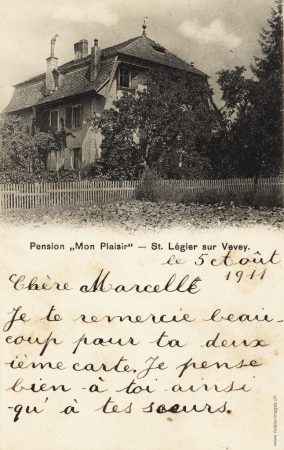 Pension „Mon Plaisir“ — St. Légier sur Vevey.
le 5 Août
1911
Chère Marcelle
Je te remercie beau-
coup pour ta deux
ième carte. Je pense
bien à toi ainsi
qu'à tes sœurs.
www.rivera-images.ch